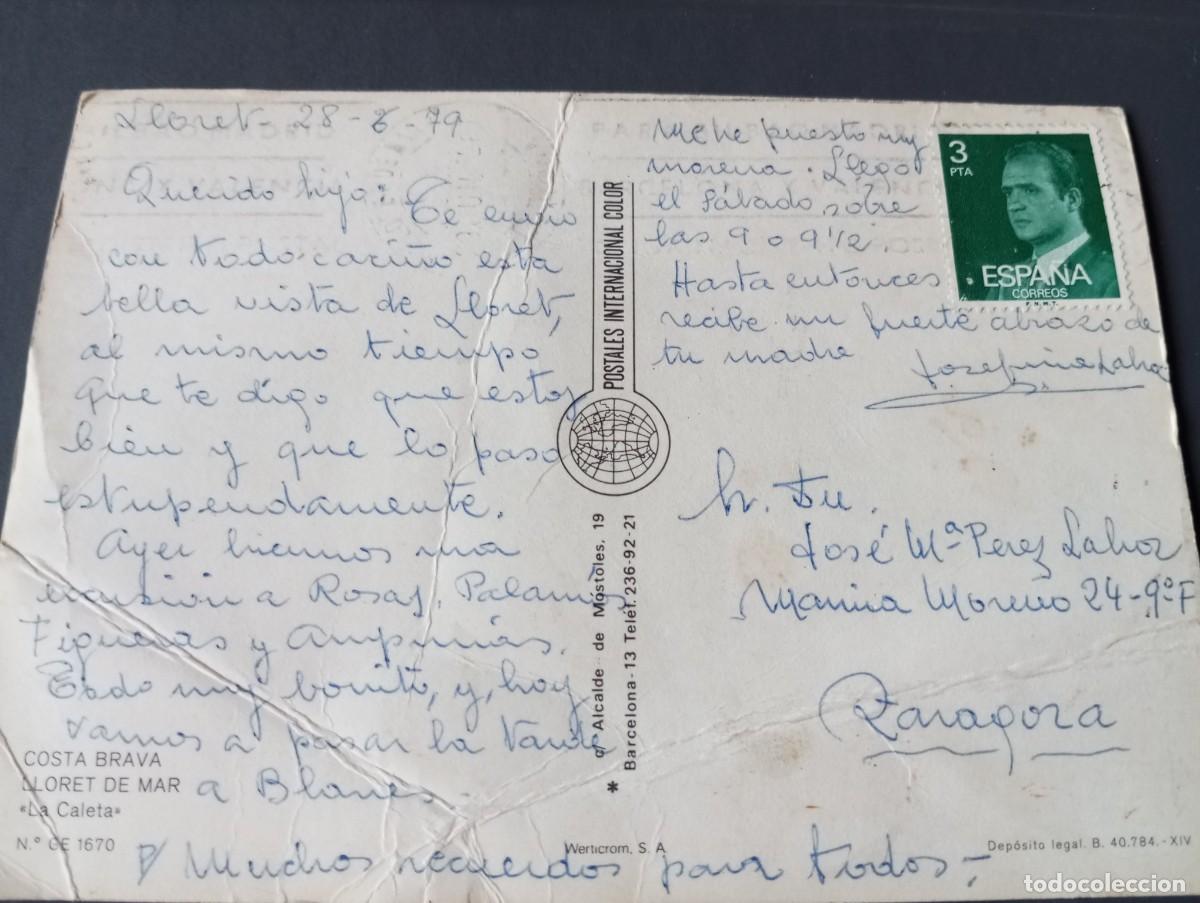 Lloret 28-6-79
Querido hijo: Te envio
con todo cariño esta
bella vista de Lloret,
al mismo tiempo
que te digo que estoy
bien y que lo paso
estupendamente.
Ayer hicimos una
excursión a Rosas, Palamós
Figueras y Ampurias.
Todo muy bonito, y, hoy
vamos a pasar la tarde
a Blanes.
Muchos recuerdos para todos.-
COSTA BRAVA
LLORET DE MAR
«La Caleta»
N.º CE 1670
POSTALES INTERNACIONAL COLOR
Alcalde de Mostoles, 19
Barcelona - 13 Teléf. 236-92-21
*
Me he puesto muy
morena. Llego
el Sábado, sobre
las 9 o 9 1/2.
Hasta entonces
recibe un fuerte abrazo de
tu madre
Josefina Lahoz
3
PTA
ESPAÑA
CORREOS
F.N.M.T.
Sr. Dn.
José Mª Perez Lahoz
Marina Moreno 24-9º F
Zaragoza
Werticrom, S. A.
Depósito legal. B. 40.784.-XIV
todocoleccion